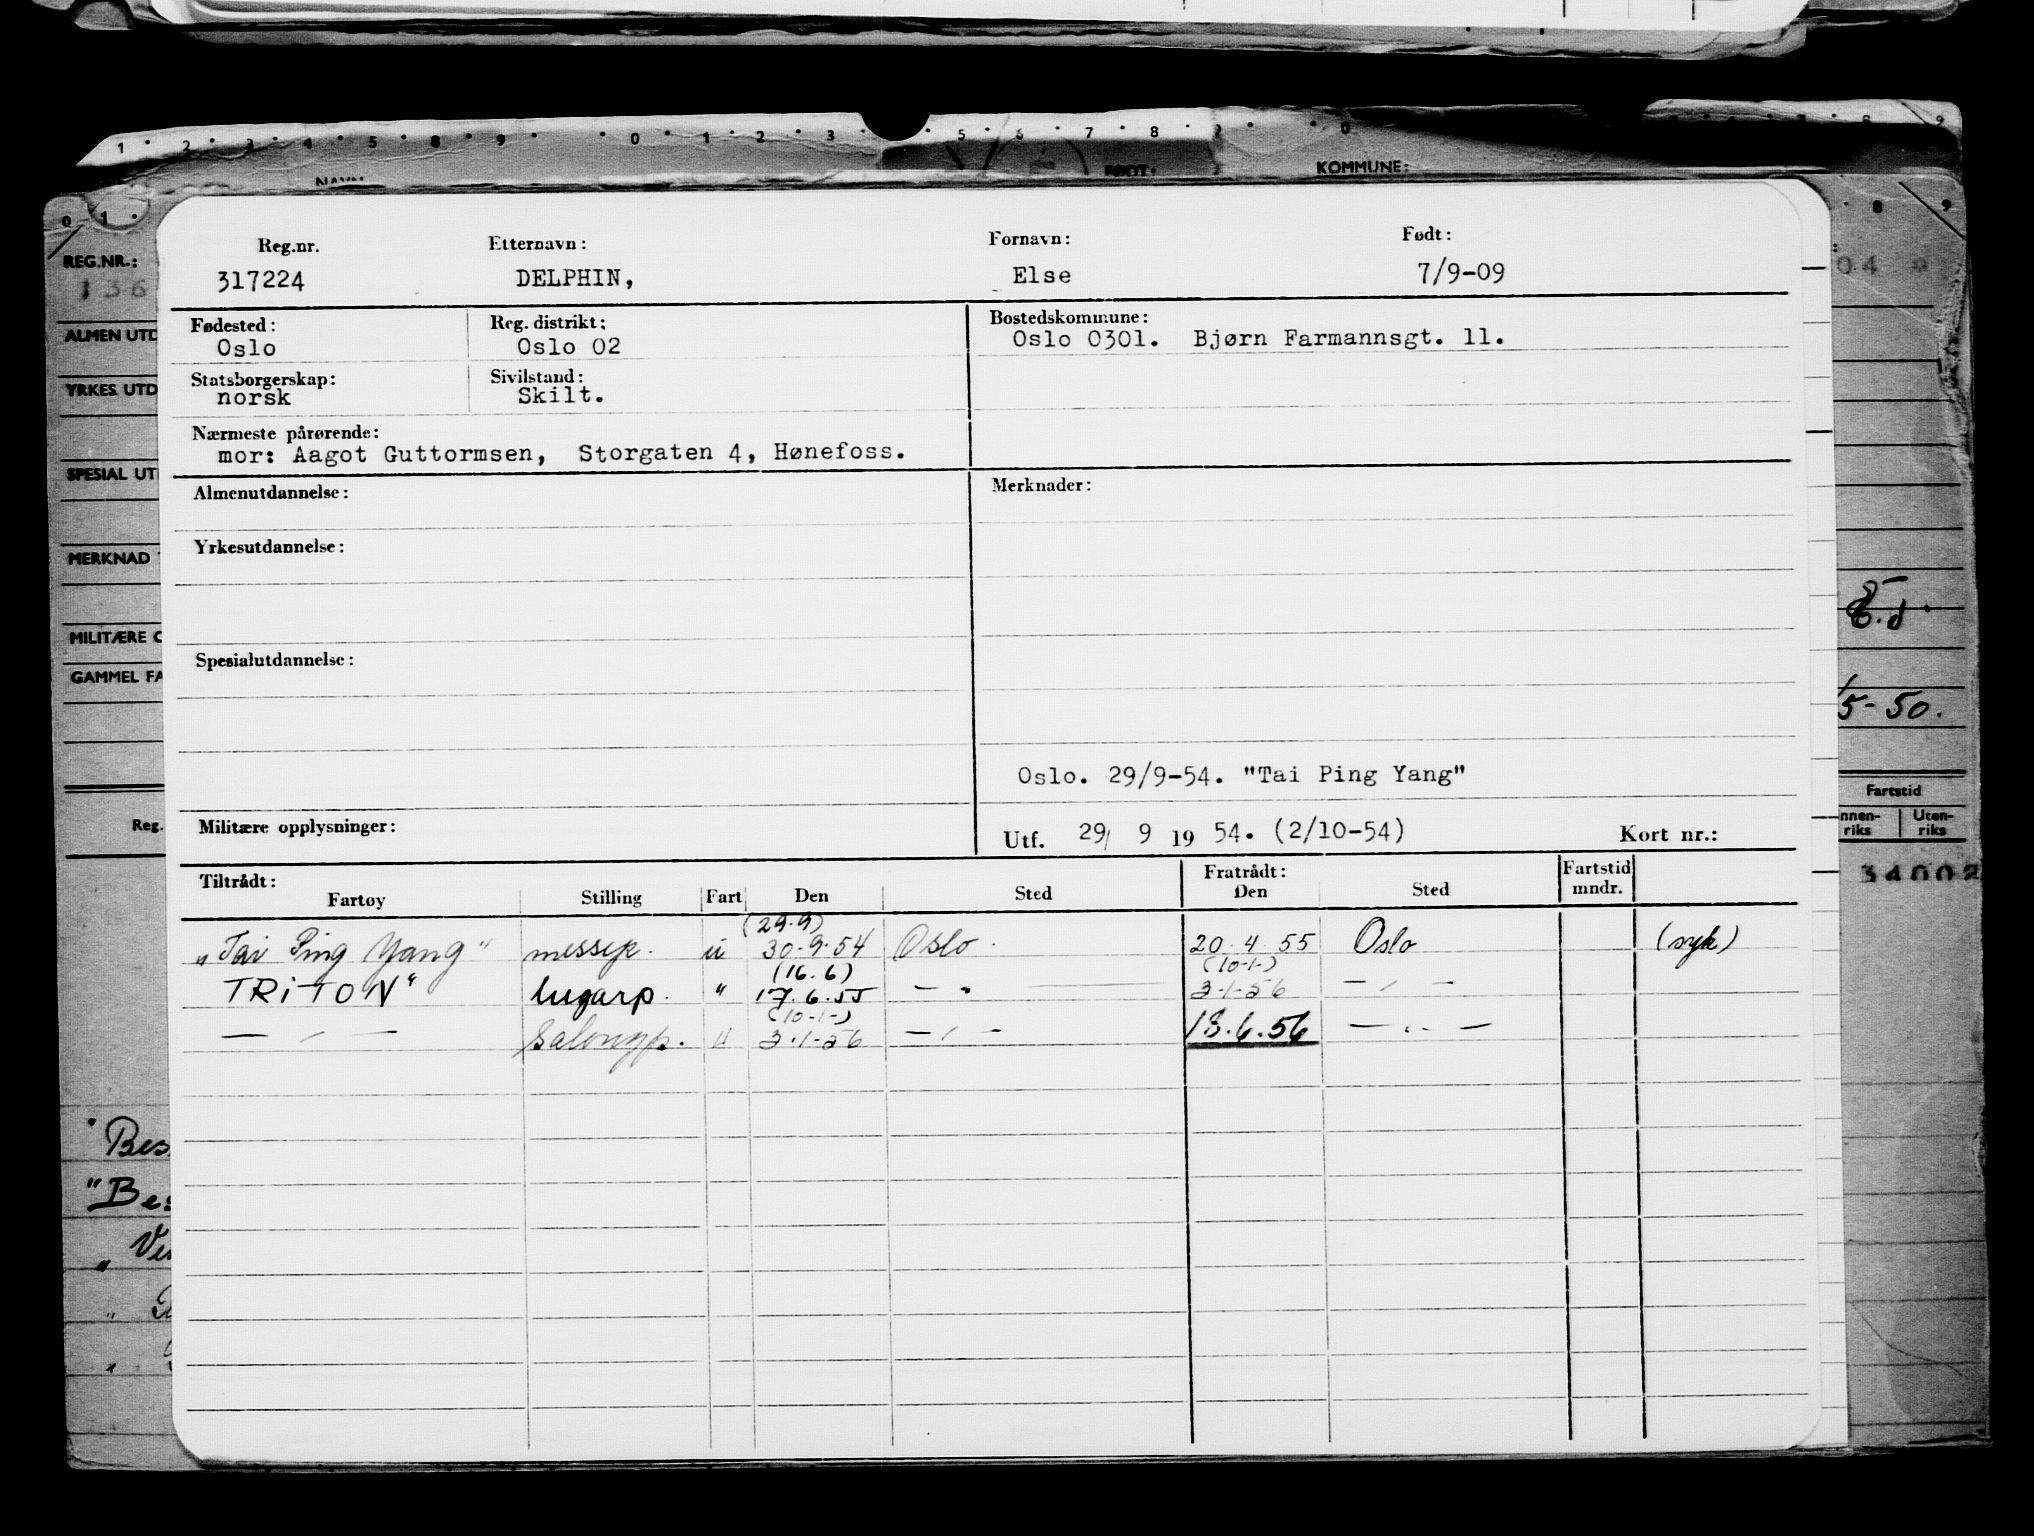 1 2 3 4 5 8 9 0 1 2 3 5 6 7 8 9 0 8 9
NAVN FØDT: KOMMUNE:
0 1 8 9
REG.NR.:
136
04 9
ALMEN UTD
YRKES UTD
SPESIAL UT
MERKNAD
MILITÆRE O
GAMMEL FA
5-50.
Fartstid
nnen-riks Uten-riks
Reg.
34002
Bes
"Be
Reg.nr. Etternavn: Fornavn: Født:
317224 DELPHIN, Else 7/9-09
Fødested: Reg. distrikt: Bostedskommune:
Oslo Oslo 02 Oslo 0301. Bjørn Farmannsgt. 11.
Statsborgerskap: Sivilstand:
norsk Skilt.
Nærmeste pårørende:
mor: Aagot Guttormsen, Storgaten 4, Hønefoss.
Almenutdannelse: Merknader:
Yrkesutdannelse:
Spesialutdannelse:
Oslo. 29/9-54. "Tai Ping Yang"
Militære opplysninger: Utf. 29/ 9 19 54. (2/10-54) Kort nr.:
Tiltrådt: Fratrådt: Fartstid mndr.
Fartøy Stilling Fart Den Sted Den Sted
(29.9)
"Tai Ping Yang" messep. u 30.9.54 Oslo. 20.4.55 Oslo (syk)
(16.6) (10-1-)
TRITON" lugarp. " 17.6.55 — " — 3-1-56 — " —
(10-1-)
— " — Salongp. u 3.1-56 — " — 18.6.56 — " —